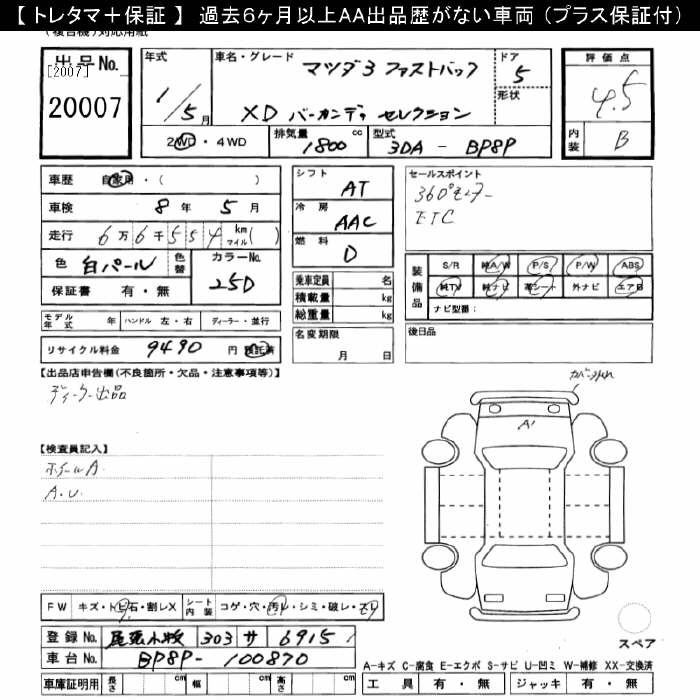 【 トレタマ＋保証 】 過去６ヶ月以上ＡＡ出品歴がない車両（プラス保証付）
(複合機)対応用紙
出品No.
[2007]
20007
年式
1/5月
車名・グレード
マツダ3 ファストバック
XD バーガンディ セレクション
ドア
5
形状
評価点
4.5
内装
B
2WD・4WD
排気量 1800 cc
型式 3DA - BP8P
車歴 自家用・( )
車検 8年 5月
走行 6万6千554 km マイル( )
色 白パール
色替
カラーNo. 25D
保証書 有・無
シフト AT
冷房 AAC
燃料 D
乗車定員 名
積載量 kg
総重量 kg
名変期限
月 日
セールスポイント
360°モニター
ETC
装備品
S/R 純A/W P/S P/W ABS
純TV 純ナビ 革シート 外ナビ エアB
ナビ型番：
後日品
モデル年式 年 ハンドル 左・右 ディーラー・並行
リサイクル料金 9490 円 預託済
【出品店申告欄(不良箇所・欠品・注意事項等)】
ディーラー出品
【検査員記入】
ホイールA
A.U.
カバー外れ
A1
スペア
FW キズ・トビ石・割レX
シート内装 コゲ・穴・汚レ・シミ・破レ・スレ
登録No. 尾張小牧 303 サ 6915
車台No. BP8P-100870
車庫証明用 長さ cm 幅 cm 高さ cm
A-キズ C-腐食 E-エクボ S-サビ U-凹ミ W-補修 XX-交換済
工具 有・無 ジャッキ 有・無